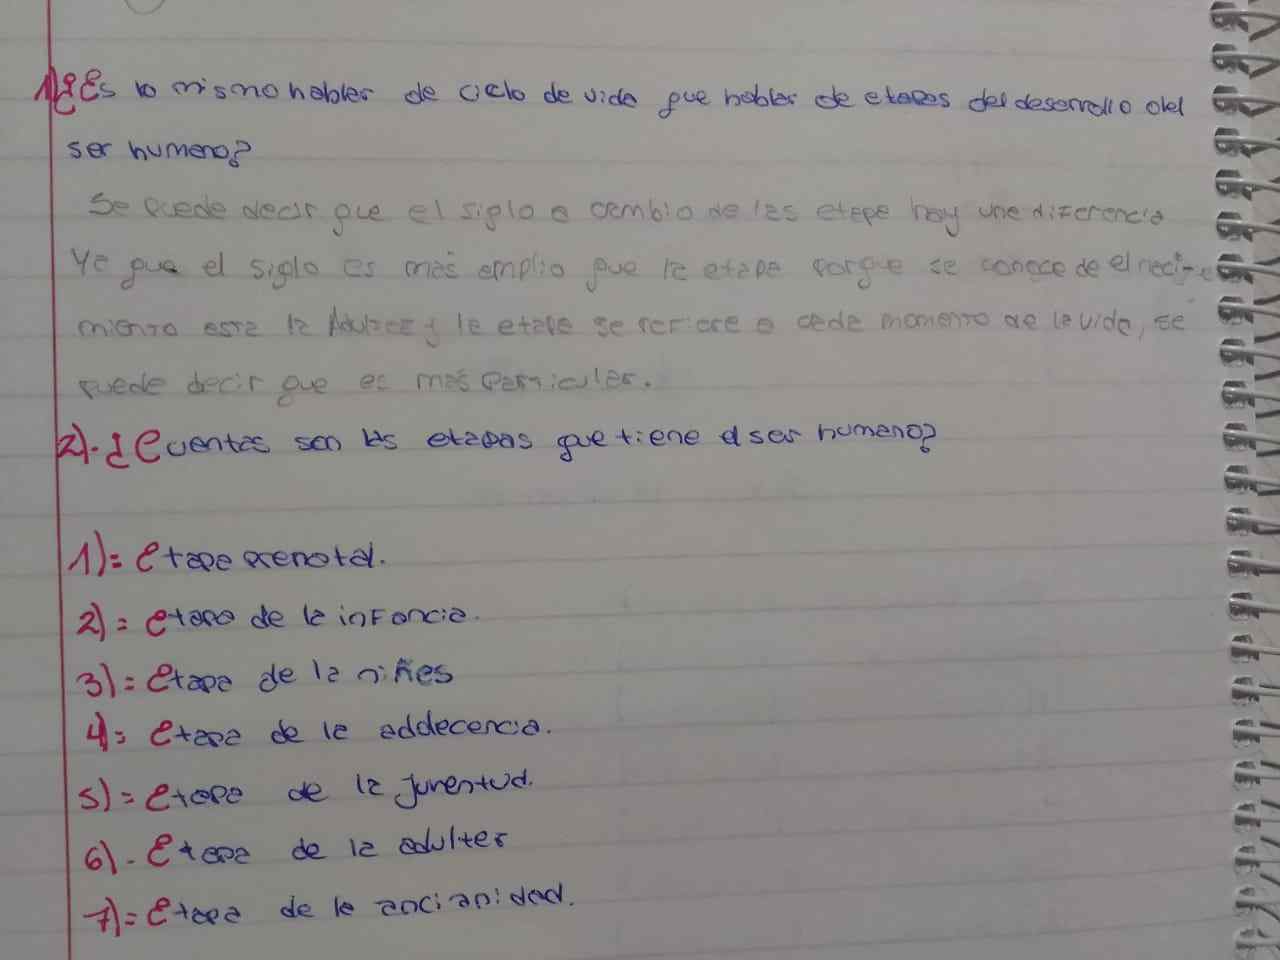 1) ¿Es lo mismo hablar de ciclo de vida que hablar de etapas del desarrollo del
ser humano?
Se puede decir que el siglo a cambio de las etapa hay una diferencia
Ya que el siglo es mas amplio que la etapa porque se conoce de el naci-
miento asta la Adultez y la etapa se refiere a cada momento de la vida, se
puede decir que es mas particular.
2).¿Cuantas son las etapas que tiene el ser humano?
1)= Etapa prenatal.
2)= etapa de la infancia.
3)= Etapa de la niñes
4)= Etapa de la adolecencia.
5)= Etapa de la juventud.
6)- Etapa de la adulter
7)= Etapa de la ancianidad.